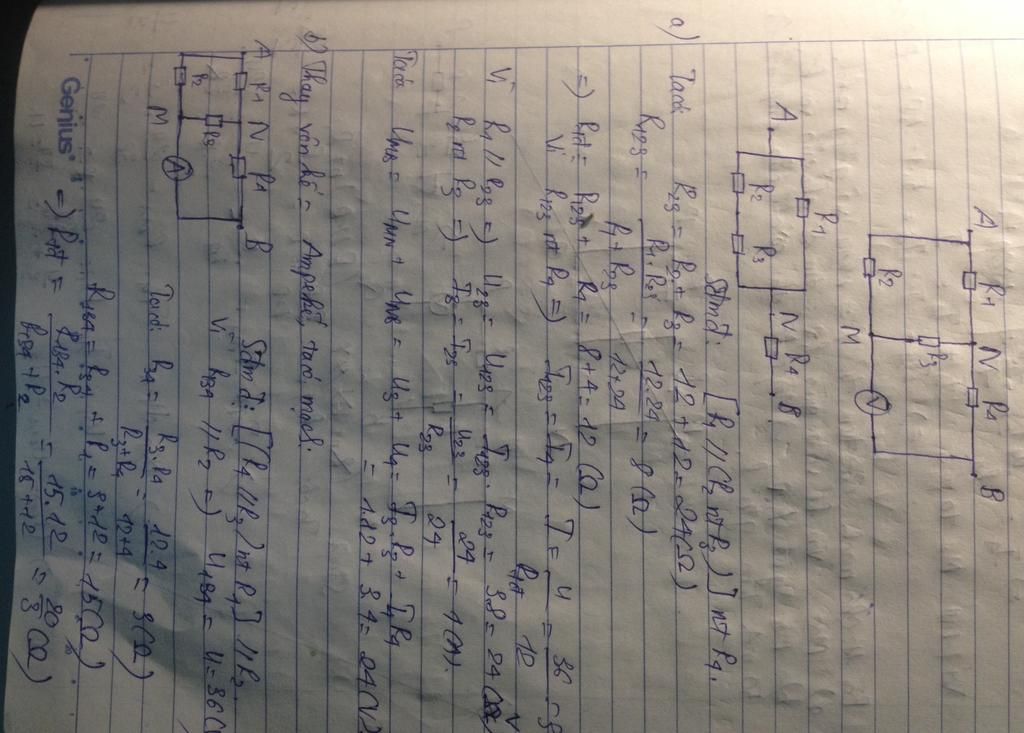 A R1 N R4 B
R3
R2 M V
a)
A R1 N R4 B
R2 R3
Sđmđ: [R1 // (R2 nt R3)] nt R4.
Ta có: R23 = R2 + R3 = 12 + 12 = 24(Ω)
R123 = R1.R23 / R1 + R23 = 12.24 / 12+24 = 8(Ω)
=) Rtđ = R123 + R4 = 8 + 4 = 12 (Ω)
Vì R123 nt R4 =) I123 = I4 = I = U / Rtđ = 36 / 12 = 3
Vì R1 // R23 =) U23 = U123 = I123.R123 = 3.8 = 24(V)
R2 nt R3 =) I3 = I23 = U23 / R23 = 24 / 24 = 1(A).
Ta có UMB = UMN + UNB = U3 + U4 = I3.R3 + I4R4
= 1.12 + 3.4 = 24(V)
b) Thay vôn kế = Ampe kế, ta có mạch.
A R1 N R4 B
R2 R3
M A
Sđmđ: [(R4 // R3) nt R1] // R2.
Vì R134 // R2 =) U134 = U = 36(
Ta có: R34 = R3.R4 / R3+R4 = 12.4 / 12+4 = 3(Ω)
R134 = R34 + R1 = 3+12 = 15(Ω)
=) Rtđ = R134.R2 / R134+R2 = 15.12 / 15+12 = 20/3 (Ω)
Genius